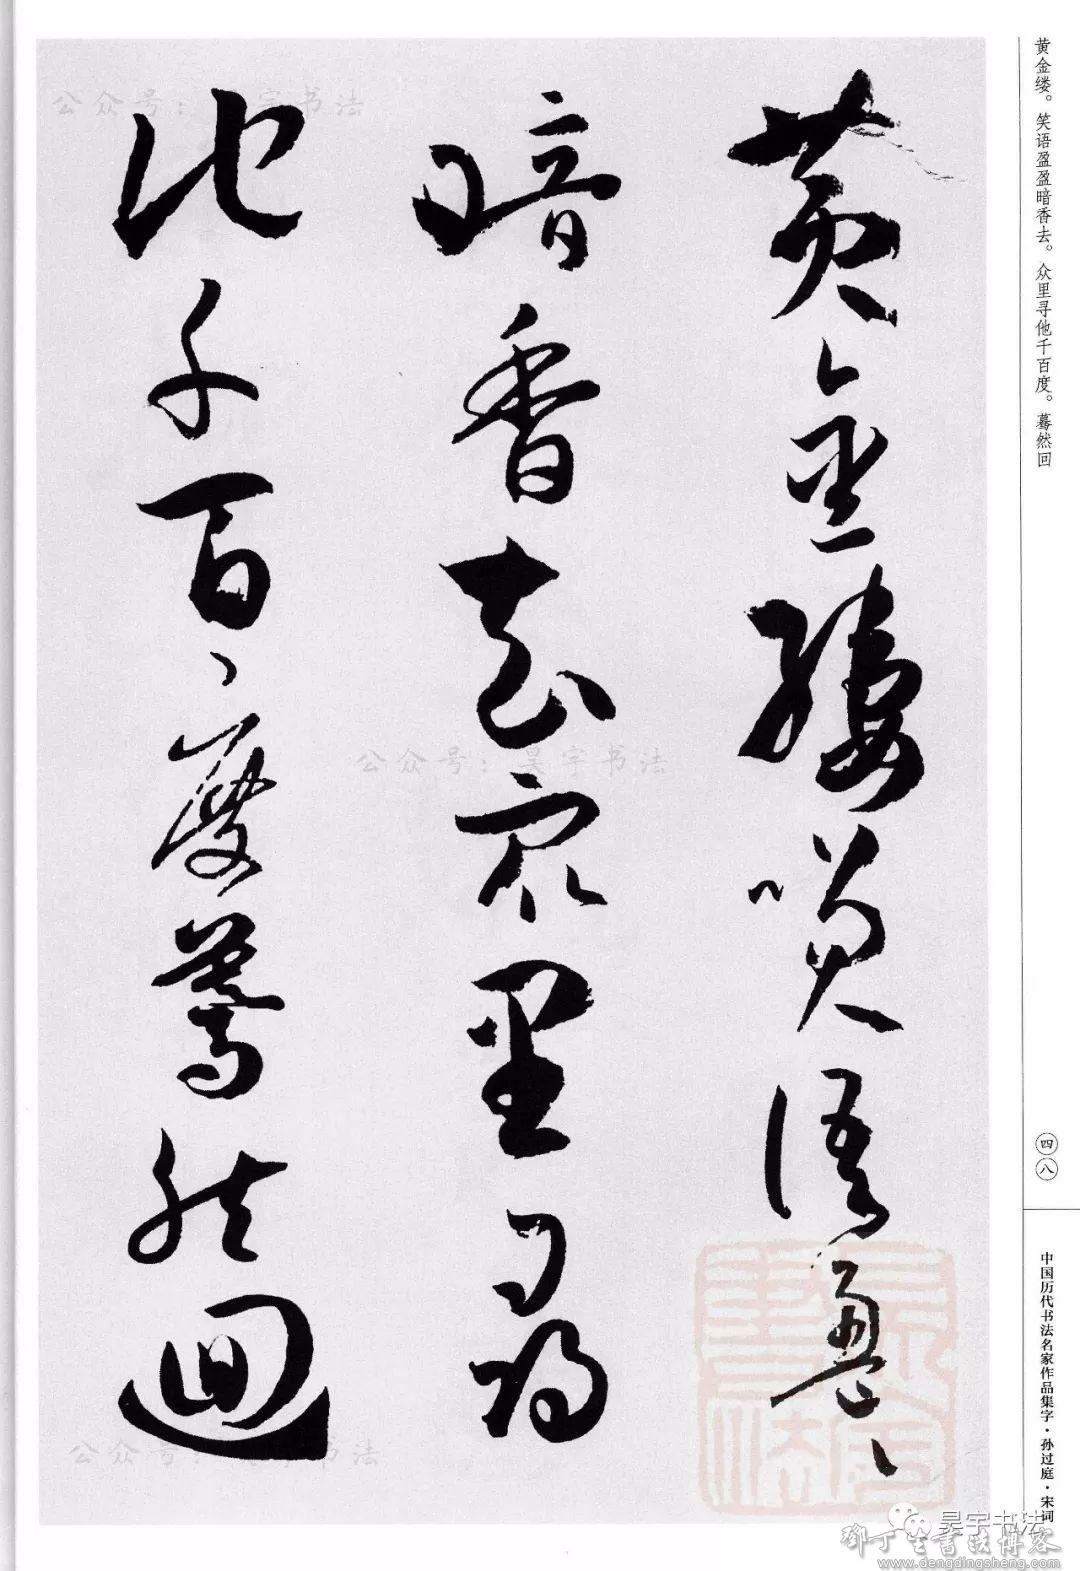 黄金缕。笑语盈盈暗香去。众里寻他千百度。蓦然回
黄金縷咲語盈〻
暗香去眾里尋
他千百度驀然迴
四八
中国历代书法名家作品集字·孙过庭·宋词
公众号：昊宇书法
公众号：昊宇书法
公众号：昊宇书法
昊宇书法
昊宇书法
鄧丁生書法博客
www.dengdingsheng.com